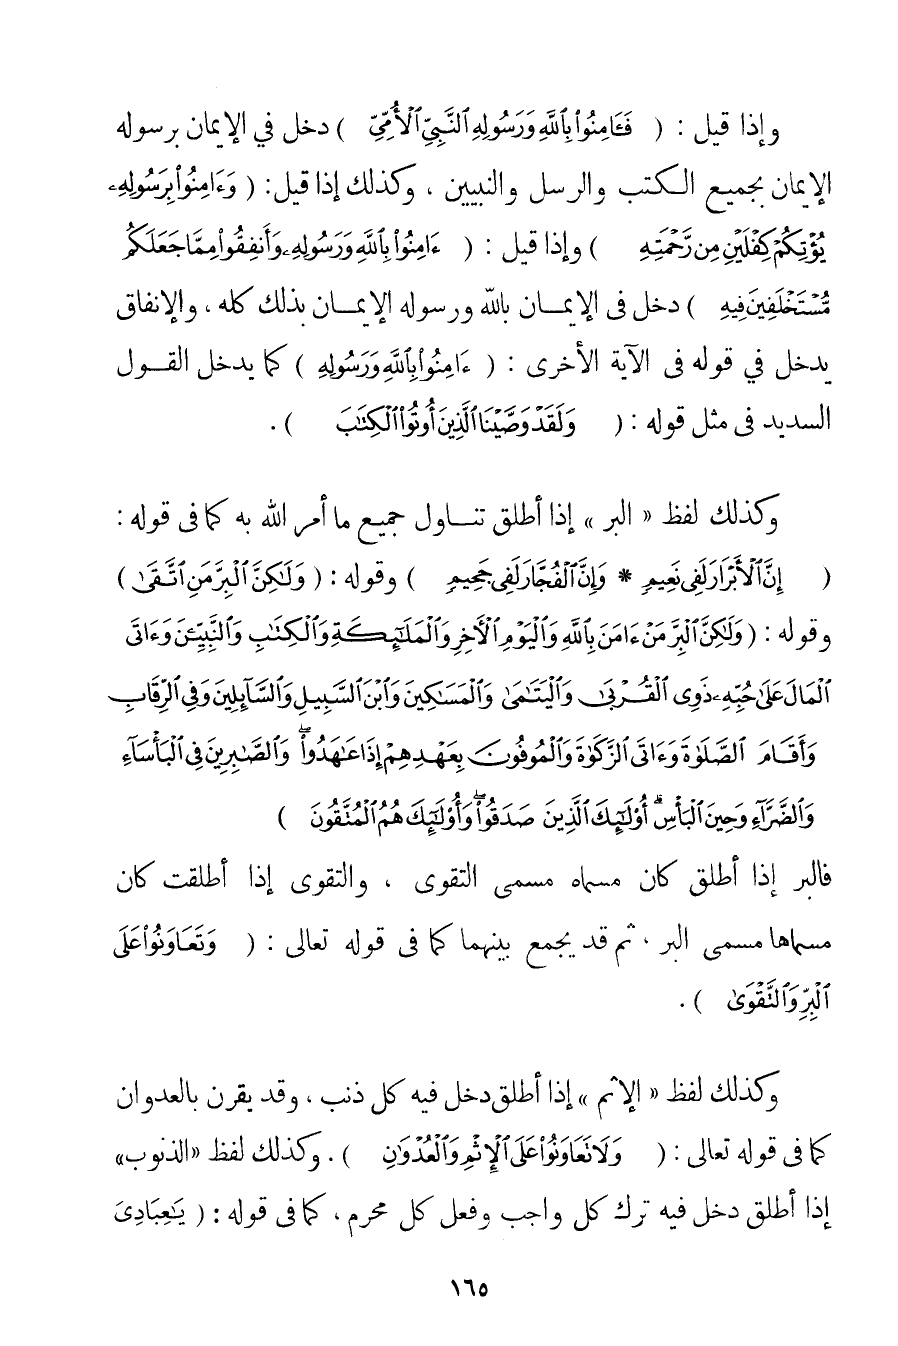 وإذا قيل : ( فَـَٔامِنُوا۟ بِٱللَّهِ وَرَسُولِهِ ٱلنَّبِىِّ ٱلْأُمِّىِّ ) دخل في الإيمان برسوله
الإيمان بجميع الكتب والرسل والنبيين ، وكذلك إذا قيل: ( وَءَامِنُوا۟ بِرَسُولِهِۦ
يُؤْتِكُمْ كِفْلَيْنِ مِن رَّحْمَتِهِ ) وإذا قيل : ( ءَامِنُوا۟ بِٱللَّهِ وَرَسُولِهِۦ وَأَنفِقُوا۟ مِمَّا جَعَلَكُمْ
مُّسْتَخْلَفِينَ فِيهِ ) دخل فى الإيمان بالله ورسوله الإيمان بذلك كله ، والإنفاق
يدخل في قوله فى الآية الأخرى : ( ءَامِنُوا۟ بِٱللَّهِ وَرَسُولِهِ ) كما يدخل القول
السديد فى مثل قوله : ( وَلَقَدْ وَصَّيْنَا ٱلَّذِينَ أُوتُوا۟ ٱلْكِتَٰبَ ) .
وكذلك لفظ « البر » إذا أطلق تناول جميع ما أمر الله به كما فى قوله :
( إِنَّ ٱلْأَبْرَارَ لَفِى نَعِيمٍ * وَإِنَّ ٱلْفُجَّارَ لَفِى جَحِيمٍ ) وقوله : ( وَلَٰكِنَّ ٱلْبِرَّ مَنِ ٱتَّقَىٰ )
وقوله : ( وَلَٰكِنَّ ٱلْبِرَّ مَنْ ءَامَنَ بِٱللَّهِ وَٱلْيَوْمِ ٱلْأَخِرِ وَٱلْمَلَٰٓئِكَةِ وَٱلْكِتَٰبِ وَٱلنَّبِيِّـۧنَ وَءَاتَى
ٱلْمَالَ عَلَىٰ حُبِّهِۦ ذَوِى ٱلْقُرْبَىٰ وَٱلْيَتَٰمَىٰ وَٱلْمَسَٰكِينَ وَٱبْنَ ٱلسَّبِيلِ وَٱلسَّآئِلِينَ وَفِى ٱلرِّقَابِ
وَأَقَامَ ٱلصَّلَوٰةَ وَءَاتَى ٱلزَّكَوٰةَ وَٱلْمُوفُونَ بِعَهْدِهِمْ إِذَا عَٰهَدُوا۟ ۖ وَٱلصَّٰبِرِينَ فِى ٱلْبَأْسَآءِ
وَٱلضَّرَّآءِ وَحِينَ ٱلْبَأْسِ ۗ أُو۟لَٰٓئِكَ ٱلَّذِينَ صَدَقُوا۟ ۖ وَأُو۟لَٰٓئِكَ هُمُ ٱلْمُتَّقُونَ )
فالبر إذا أطلق كان مسماه مسمى التقوى ، والتقوى إذا أطلقت كان
مسماها مسمى البر ، ثم قد يجمع بينهما كما فى قوله تعالى : ( وَتَعَاوَنُوا۟ عَلَى
ٱلْبِرِّ وَٱلتَّقْوَىٰ ) .
وكذلك لفظ « الإثم » إذا أطلق دخل فيه كل ذنب ، وقد يقرن بالعدوان
كما فى قوله تعالى : ( وَلَا تَعَاوَنُوا۟ عَلَى ٱلْإِثْمِ وَٱلْعُدْوَٰنِ ) . وكذلك لفظ «الذنوب»
إذا أطلق دخل فيه ترك كل واجب وفعل كل محرم ، كما فى قوله : ( يَٰعِبَادِىَ
١٦٥